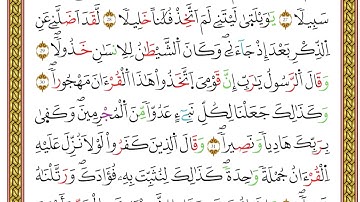 سَبِيلًا ۝٢٧ يَٰوَيْلَتَىٰ لَيْتَنِى لَمْ أَتَّخِذْ فُلَانًا خَلِيلًا ۝٢٨ لَّقَدْ أَضَلَّنِى عَنِ
ٱلذِّكْرِ بَعْدَ إِذْ جَآءَنِى ۗ وَكَانَ ٱلشَّيْطَٰنُ لِلْإِنسَٰنِ خَذُولًا ۝٢٩
وَقَالَ ٱلرَّسُولُ يَٰرَبِّ إِنَّ قَوْمِى ٱتَّخَذُوا۟ هَٰذَا ٱلْقُرْءَانَ مَهْجُورًا ۝٣٠
وَكَذَٰلِكَ جَعَلْنَا لِكُلِّ نَبِىٍّ عَدُوًّا مِّنَ ٱلْمُجْرِمِينَ ۗ وَكَفَىٰ
بِرَبِّكَ هَادِيًا وَنَصِيرًا ۝٣١ وَقَالَ ٱلَّذِينَ كَفَرُوا۟ لَوْلَا نُزِّلَ عَلَيْهِ
ٱلْقُرْءَانُ جُمْلَةً وَٰحِدَةً ۚ كَذَٰلِكَ لِنُثَبِّتَ بِهِۦ فُؤَادَكَ ۖ وَرَتَّلْنَٰهُ